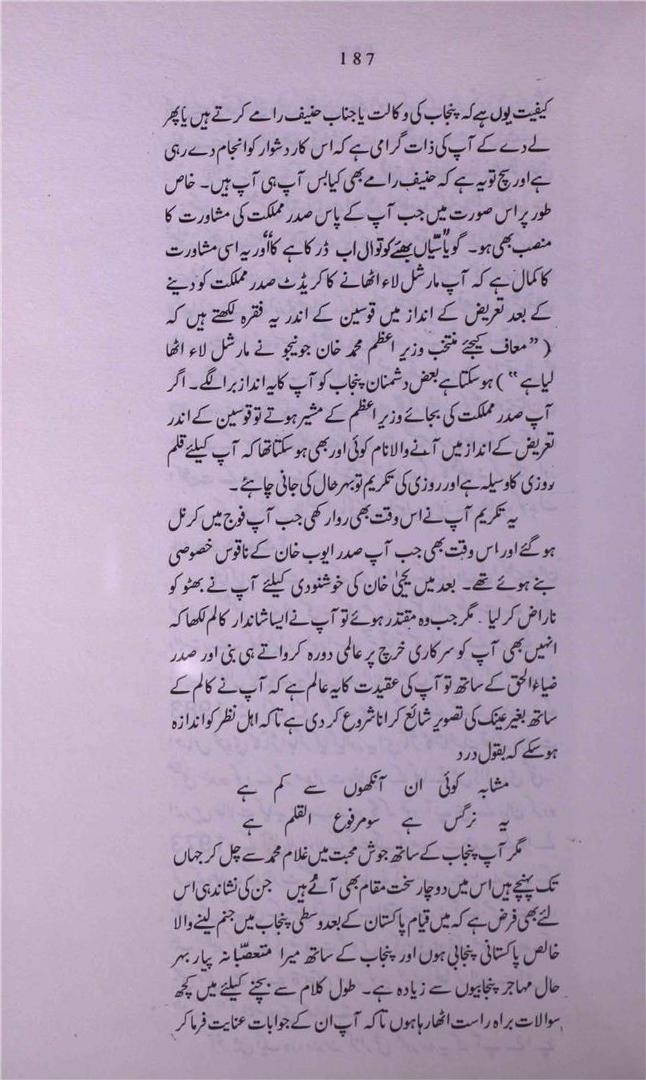 187
کیفیت یوں ہے کہ پنجاب کی وکالت یا جناب حنیف رامے کرتے ہیں یا پھر
لے دے کے آپ کی ذات گرامی ہے کہ اس کار دشوار کو انجام دے رہی
ہے اور سچ تو یہ ہے کہ حنیف رامے بھی کیا بس آپ ہی آپ ہیں۔ خاص
طور پر اس صورت میں جب آپ کے پاس صدر مملکت کی مشاورت کا
منصب بھی ہو۔ گویا "سیّاں بھئے کوتوال اب ڈر کاہے کا" اور یہ اسی مشاورت
کا کمال ہے کہ آپ مارشل لاء اٹھانے کا کریڈٹ صدر مملکت کو دینے
کے بعد تعریض کے انداز میں قوسین کے اندر یہ فقرہ لکھتے ہیں کہ
("معاف کیجئے منتخب وزیر اعظم محمد خان جونیجو نے مارشل لاء اٹھا
لیا ہے") ہو سکتا ہے بعض دشمنان پنجاب کو آپ کا یہ انداز برا لگے۔ اگر
آپ صدر مملکت کی بجائے وزیر اعظم کے مشیر ہوتے تو قوسین کے اندر
تعریض کے انداز میں آنے والا نام کوئی اور بھی ہو سکتا تھا کہ آپ کیلئے قلم
روزی کا وسیلہ ہے اور روزی کی تکریم تو بہر حال کی جانی چاہئے۔
یہ تکریم آپ نے اس وقت بھی روا رکھی جب آپ فوج میں کرنل
ہو گئے اور اس وقت بھی جب آپ صدر ایوب خان کے ناقوس خصوصی
بنے ہوئے تھے۔ بعد میں یحییٰ خان کی خوشنودی کیلئے آپ نے بھٹو کو
ناراض کر لیا۔ مگر جب وہ مقتدر ہوئے تو آپ نے ایسا شاندار کالم لکھا کہ
انہیں بھی آپ کو سرکاری خرچ پر عالمی دورہ کرواتے ہی بنی اور صدر
ضیاءالحق کے ساتھ تو آپ کی عقیدت کا یہ عالم ہے کہ آپ نے کالم کے
ساتھ بغیر عینک کی تصویر شائع کرانا شروع کر دی ہے تاکہ اہل نظر کو اندازہ
ہو سکے کہ بقول درد
مشابہ کوئی ان آنکھوں سے کم ہے
یہ نرگس ہے سو مرفوع القلم ہے
مگر آپ پنجاب کے ساتھ جوش محبت میں غلام محمد سے چل کر جہاں
تک پہنچے ہیں اس میں دو چار سخت مقام بھی آئے ہیں جن کی نشاندہی اس
لئے بھی فرض ہے کہ میں قیام پاکستان کے بعد وسطی پنجاب میں جنم لینے والا
خالص پاکستانی پنجابی ہوں اور پنجاب کے ساتھ میرا متعصّبانہ پیار بہر
حال مہاجر پنجابیوں سے زیادہ ہے۔ طول کلام سے بچنے کیلئے میں کچھ
سوالات براہ راست اٹھا رہا ہوں تاکہ آپ ان کے جوابات عنایت فرما کر